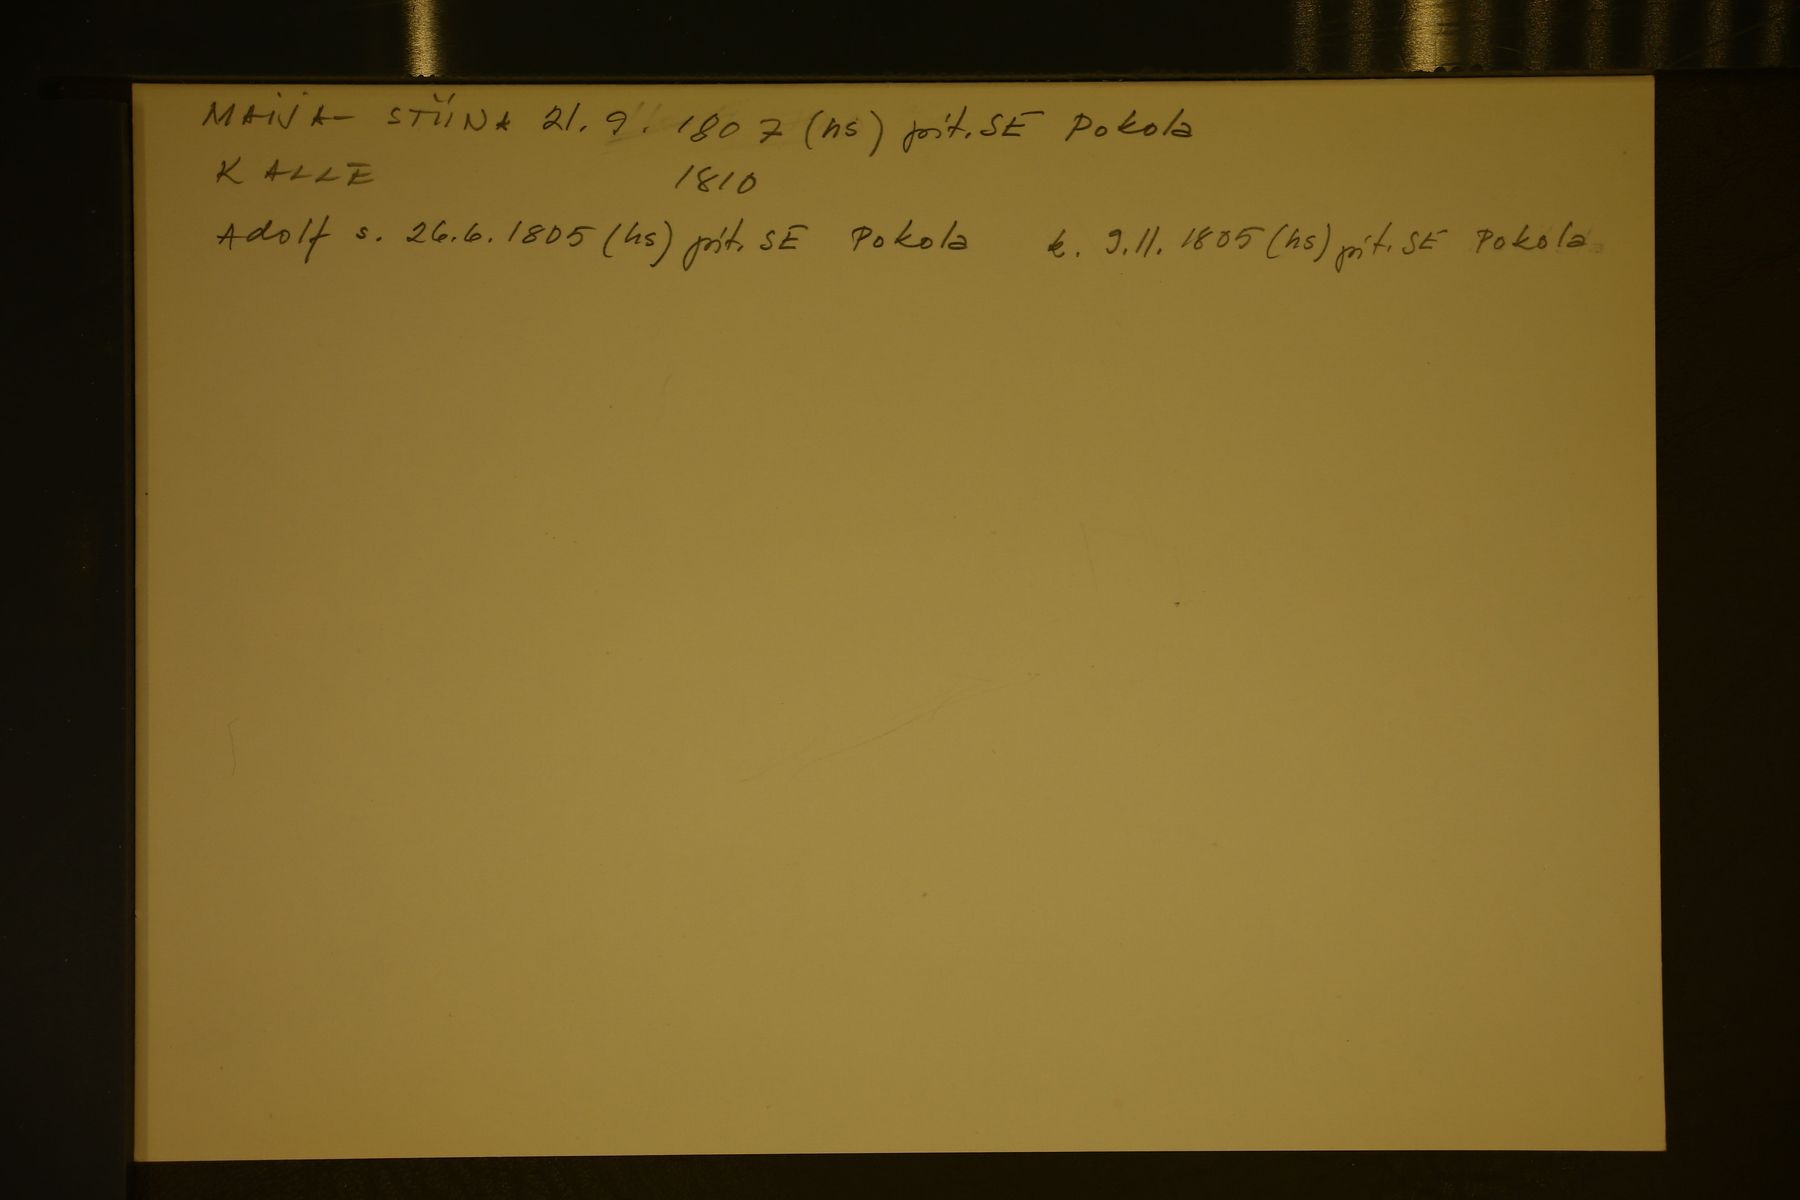 MAIJA-STIINA 21.9.1807 (hs) pit. SE Pokola
KALLE 1810
Adolf s. 26.6.1805 (hs) pit. SE Pokola k. 9.11.1805 (hs) pit. SE Pokola